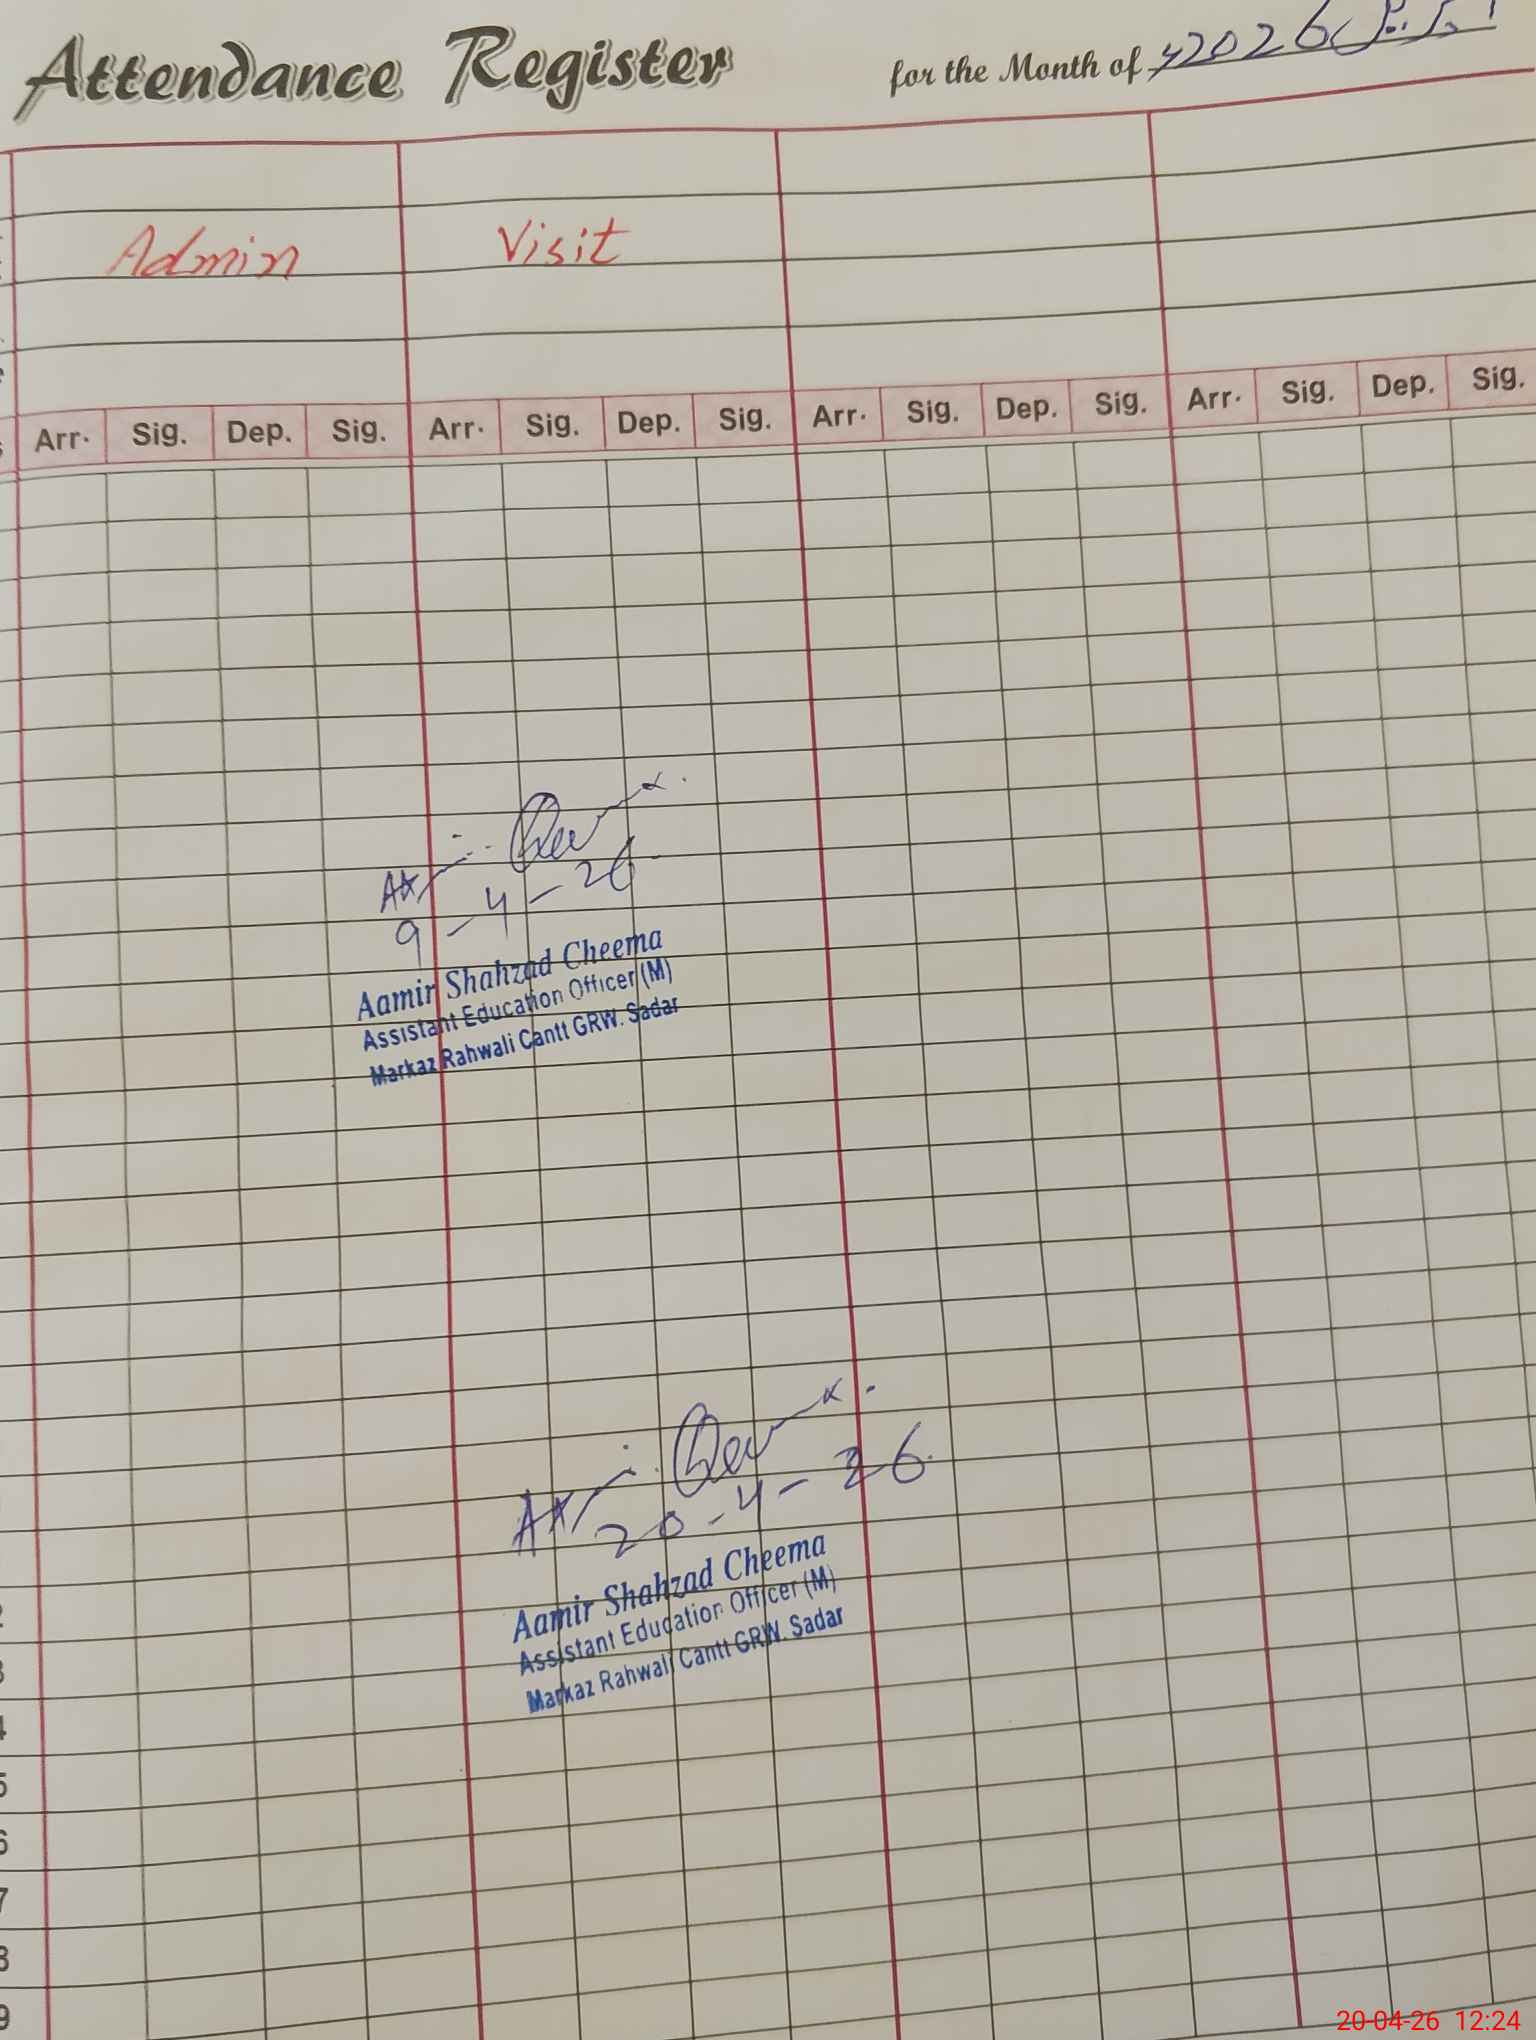 Attendance Register
for the Month of 2026
Admin Visit
Arr. Sig. Dep. Sig. Arr. Sig. Dep. Sig. Arr. Sig. Dep. Sig. Arr. Sig. Dep. Sig.
9-4-26
Aamir Shahzad Cheema
Assistant Education Officer (M)
Markaz Rahwali Cantt GRW. Sadar
20-4-26
Aamir Shahzad Cheema
Assistant Education Officer (M)
Markaz Rahwali Cantt GRW. Sadar
2
3
4
5
6
7
8
9
20-04-26 12:24